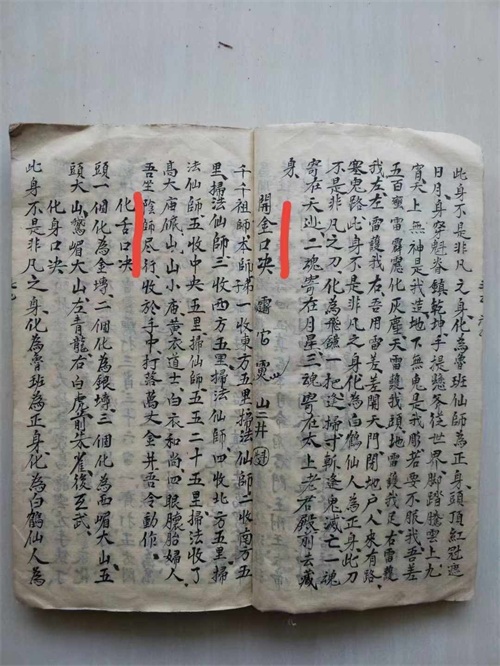 此身不是非凡之身化為魯班仙師為正身頭頂紅冠遮
日月身穿魁脊鎮乾坤手提鷄爷徒世界脚踏騰雲上九
霄天上無神是我造地下無鬼是我彫若要不服我吾差
五百蠻雷霹靂化灰塵天雷護我頭地雷護我足右雷護
我左左雷護我右吾用雷差差開天門閉地戶人來有路
塞鬼路此身不是非凡之身化為白鶴仙人為正身此刀
不是非凡之刀化為飛磘一把逆掃寸斬逢鬼滅亡一魂
寄在天沙二魂寄在月星三魂寄在太上老君殿前去藏
身
開金口决
千千祖師太師子弟一收東方五里掃法仙師二收南方五
里掃法仙師三收西方五里掃法仙師四收北方五里掃
法仙師五收中央五里掃仙師五五二十五里掃法收了
高大唐儣山山小庙黄衣道士白衣和尚四眼朦胎婦人
吾坐陰師尽行收於手中打落萬丈金井吾令動作
化舌口决
頭一個化為金塼二個化為銀塼三個化為而嵋大山五
頭大山鵞嵋大山左青龍右白虎前朱雀後玄武
化身口决
此身不是非凡之身化為魯班為正身化為白鶴仙人為